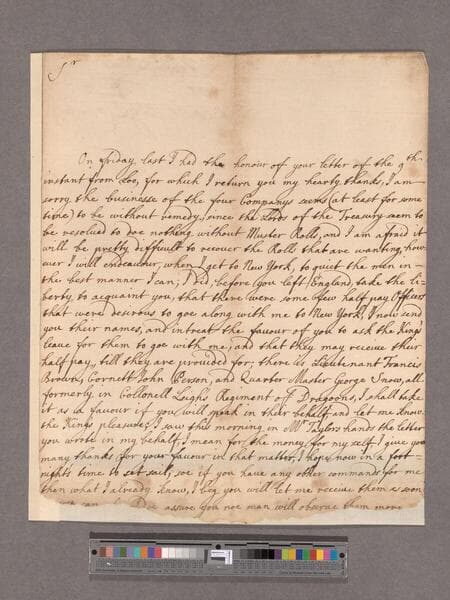 Sr
On Friday last I had the honour off your letter off the 9th
instant from Loo, for which I return you my hearty thanks, I am
sorry the businesse of the four Companys seems (at least for some
time) to be without remedy, since the Lords of the Treasury seem to
be resolved to doe nothing without Muster Rolls, and I am afraid it
will be pretty difficult to recover the Rolls that are wanting, how=
ever I will endeavour, when I get to New York, to quiet the men in
the best manner I can; I did, before you left England, take the li=
berty to acquaint you, that there were some few half pay Officers
that were desirous to goe along with me to New York, I now send
you their names, and intreat the favour of you to ask the King's
leave for them to goe with me, and that they may receive their
half pay, till they are provided for; there is Lieutenant Francis
Brown, Cornett John Person, and Quarter Master George Snow, all
formerly in Collonell Leighs Regiment off Dragoons, I shall take
it as a favour if you will speak in their behalf and let me know
the Kings pleasure; I saw this morning in Mr Taylors hands the letter
you wrote in my behalf, I mean for the money for my self I give you
many thanks for your favour in that matter, I hope now in a fort=
night's time to set sail, soe if you have any other commands for me
then what I already know, I beg you will let me receive them as soon
you can assure you noe man will observe them more